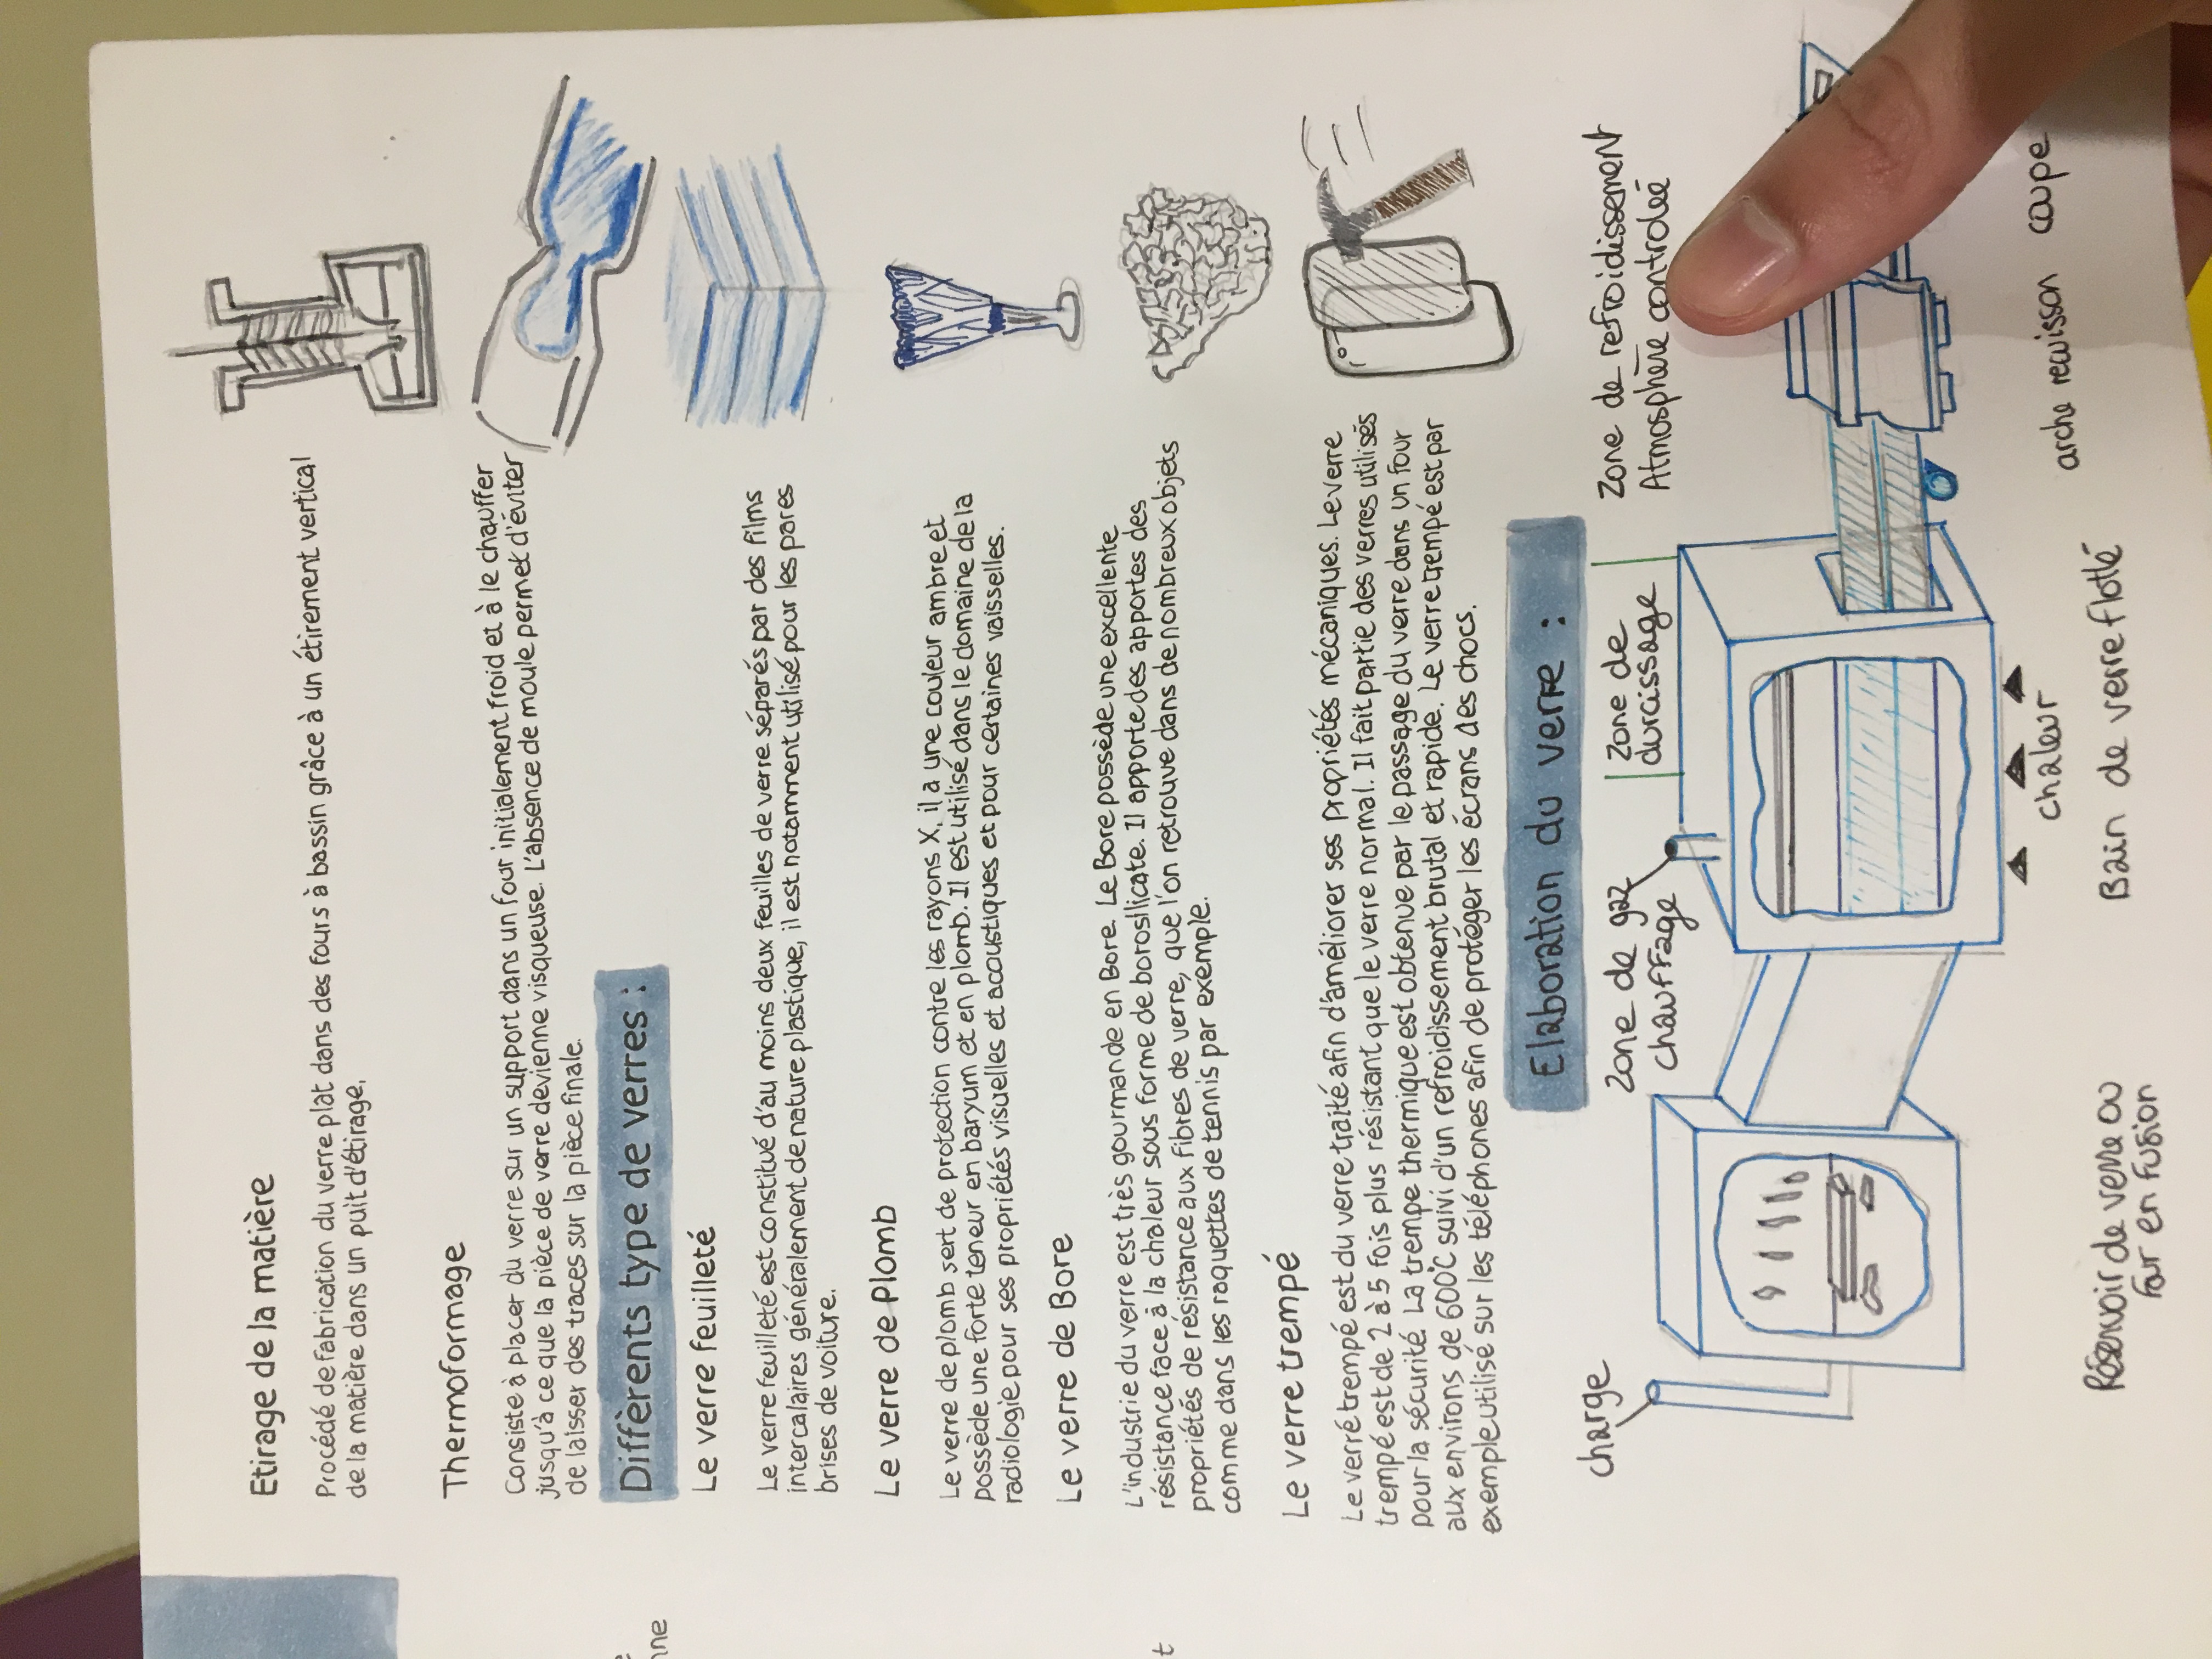 Etirage de la matière
Procédé de fabrication du verre plat dans des fours à bassin grâce à un étirement vertical
de la matière dans un puit d'étirage.
Thermoformage
Consiste à placer du verre sur un support dans un four initialement froid et à le chauffer
jusqu'à ce que la pièce de verre devienne visqueuse. L'absence de moule permet d'éviter
de laisser des traces sur la pièce finale.
nne
Diffèrents type de verres :
Le verre feuilleté
Le verre feuilleté est constitué d'au moins deux feuilles de verre séparés par des films
intercalaires généralement de nature plastique, il est notamment utilisé pour les pares
brises de voiture.
Le verre de Plomb
Le verre de plomb sert de protection contre les rayons X, il a une couleur ambre et
possède une forte teneur en baryum et en plomb. Il est utilisé dans le domaine de la
radiologie pour ses propriétés visuelles et acoustiques et pour certaines vaisselles.
Le verre de Bore
L'industrie du verre est très gourmande en Bore. Le Bore possède une excellente
t
résistance face à la chaleur sous forme de borosilicate. Il apporte des apportes des
propriétés de résistance aux fibres de verre, que l'on retrouve dans de nombreux objets
comme dans les raquettes de tennis par exemple.
Le verre trempé
Le verré trempé est du verre traité afin d'améliorer ses propriétés mécaniques. Le verre
trempé est de 2 à 5 fois plus résistant que le verre normal. Il fait partie des verres utilisés
pour la sécurité. La trempe thermique est obtenue par le passage du verre dans un four
aux environs de 600°C suivi d'un refroidissement brutal et rapide. Le verre trempé est par
exemple utilisé sur les téléphones afin de protéger les écrans des chocs.
Elaboration du verre :
charge
Zone de gaz
chauffage
Zone de
durcissage
Zone de refroidissement
Atmosphère controleé
chaleur
arche recuisson coupe
Réservoir de verre ou
four en fusion
Bain de verre flotté